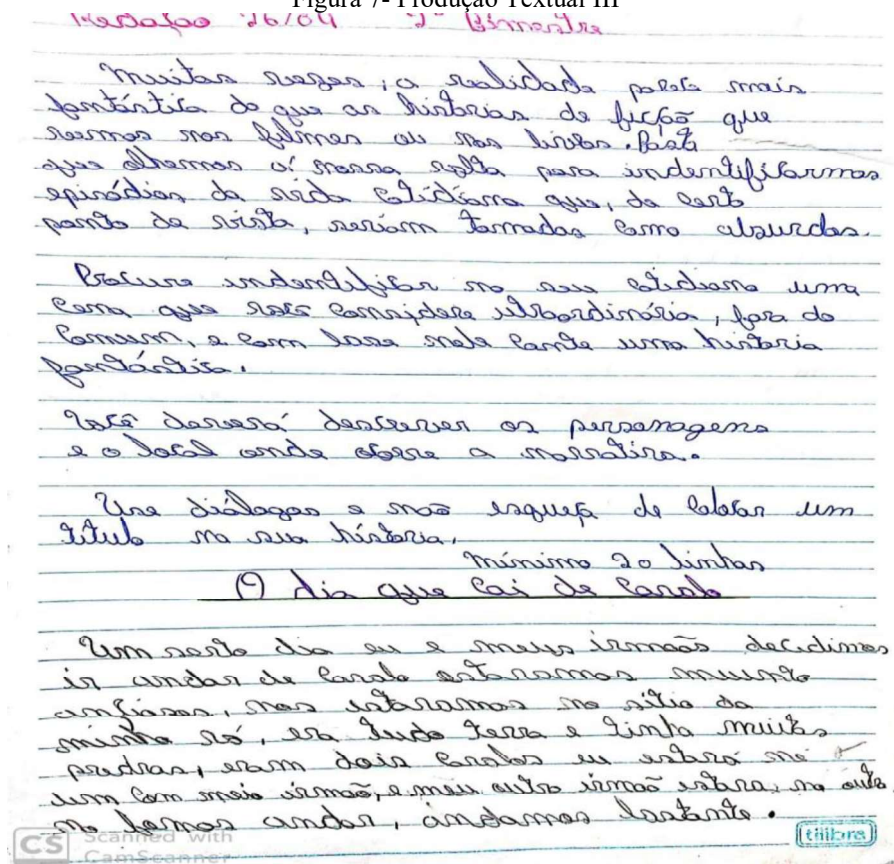 Figura 7- Produção Textual III
Redação 26/04 2º Bimestre
Muitas vezes, a realidade parece mais
fantástica do que as histórias de ficção que
vemos nos filmes ou nos livros. Basta
que olhemos á nossa volta para indentificarmos
episódios da vida cotidiana que, de certo
ponto de vista, seriam tomados como absurdos.
Procure indentificar no seu cotidiano uma
cena que você considere extraordinária, fora do
comum, e com base nela conte uma história
fantástica.
Você deverá descrever os personagens
e o local onde ocorre a narrativa.
Use diálogos e não esqueça de colocar um
título na sua história.
mínimo 20 linhas
O dia que cai de cavalo
Um serto dia eu e meus irmãos decidimos
ir andar de cavalo estavamos muinto
ansiosos, nos estavamos no sitio da
minha vó, era tudo terra e tinha muitas
pedras, eram dois cavalos eu estava no
um com meio irmaõ, e meu outro irmaõ estava, no outro
no andar, andamos bastante.
tilibra
CS Scanned with
CamScanner